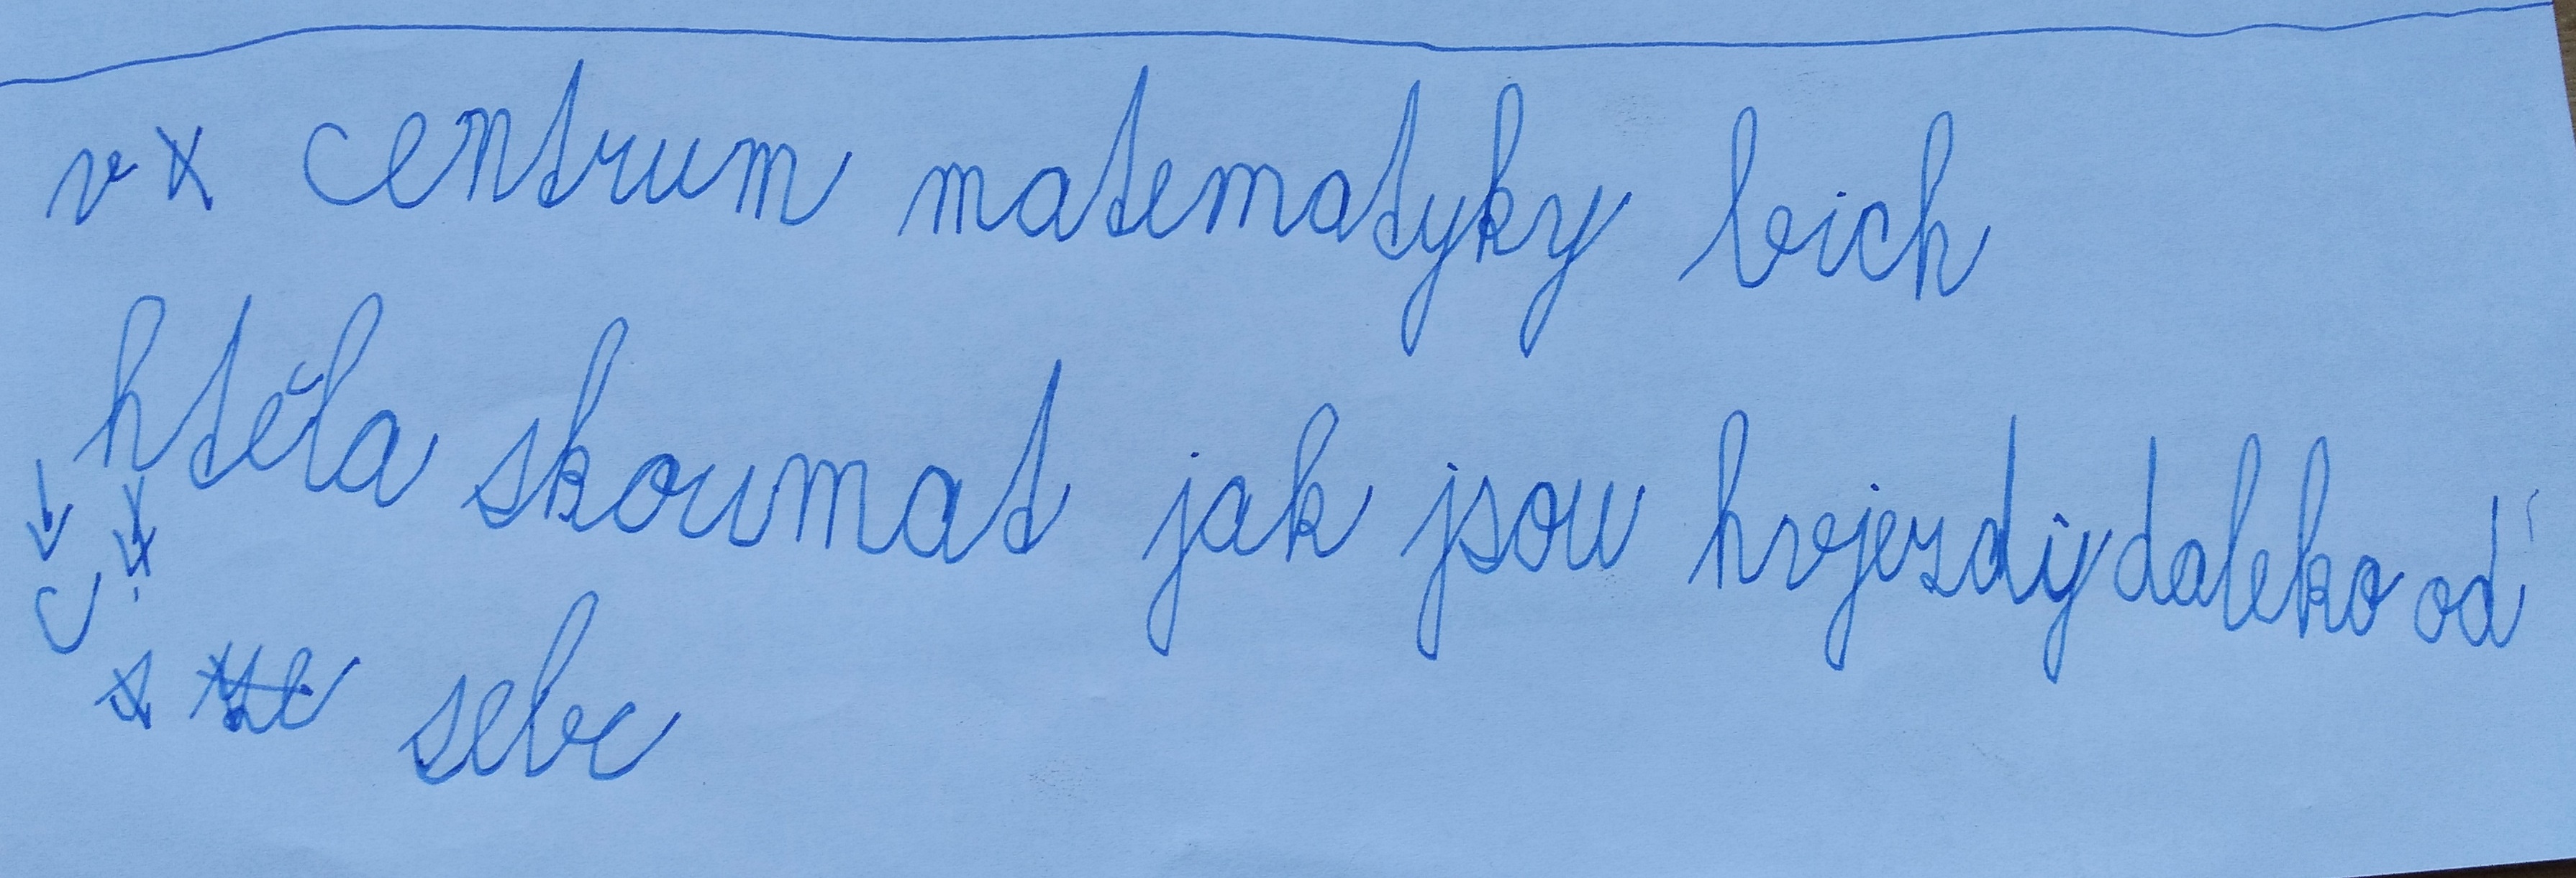 v x centrum matematyky bich
htěla skoumat jak jsou hvjezdy daleko od
c
sebe